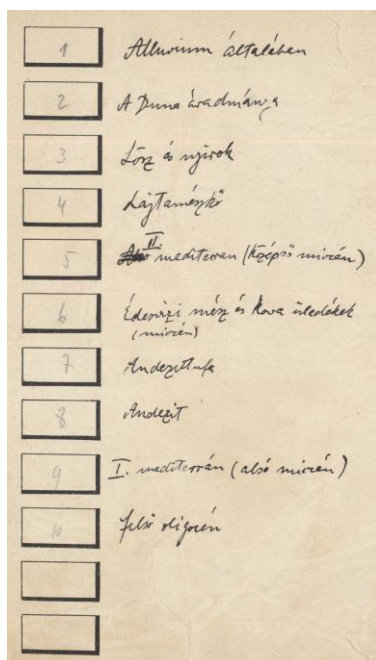 1 Alluvium általában
2 A Duna áradmánya
3 Lösz és nyirok
4 Lajtamészkő
5 II. mediterran (középső miocén)
6 Édesvizi mész és kova üledékek
(miocén)
7 Andezittufa
8 Andezit
9 I. mediterrán (alsó miocén)
10 felső oligocén